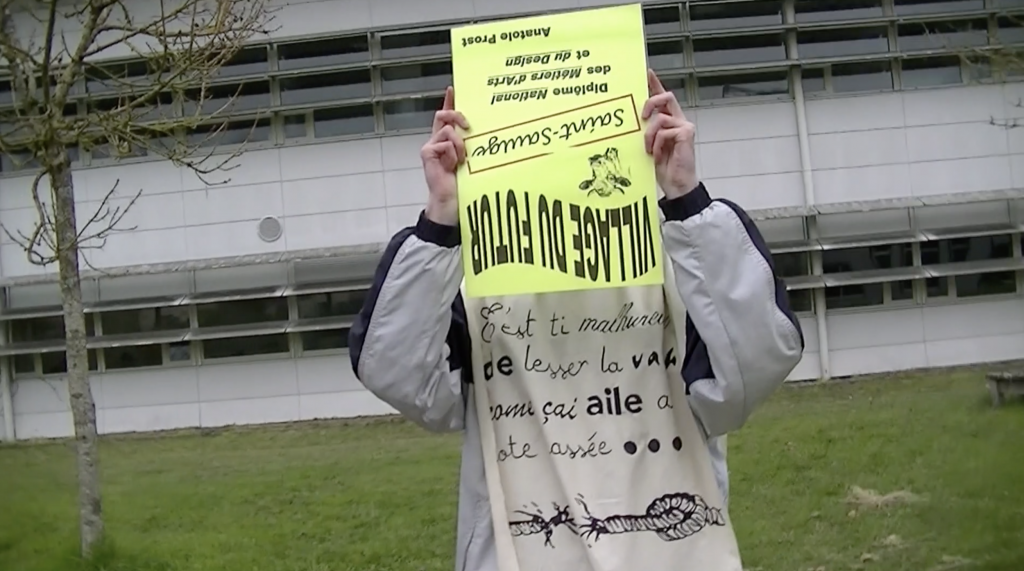 Anatole Prost
Diplôme National
des Métiers d'Arts
et du Design
Saint-Sauge
VILLAGE DU FUTUR
C'est ti malhureu
de lesser la vah
comi çai aile a
ote assée •••